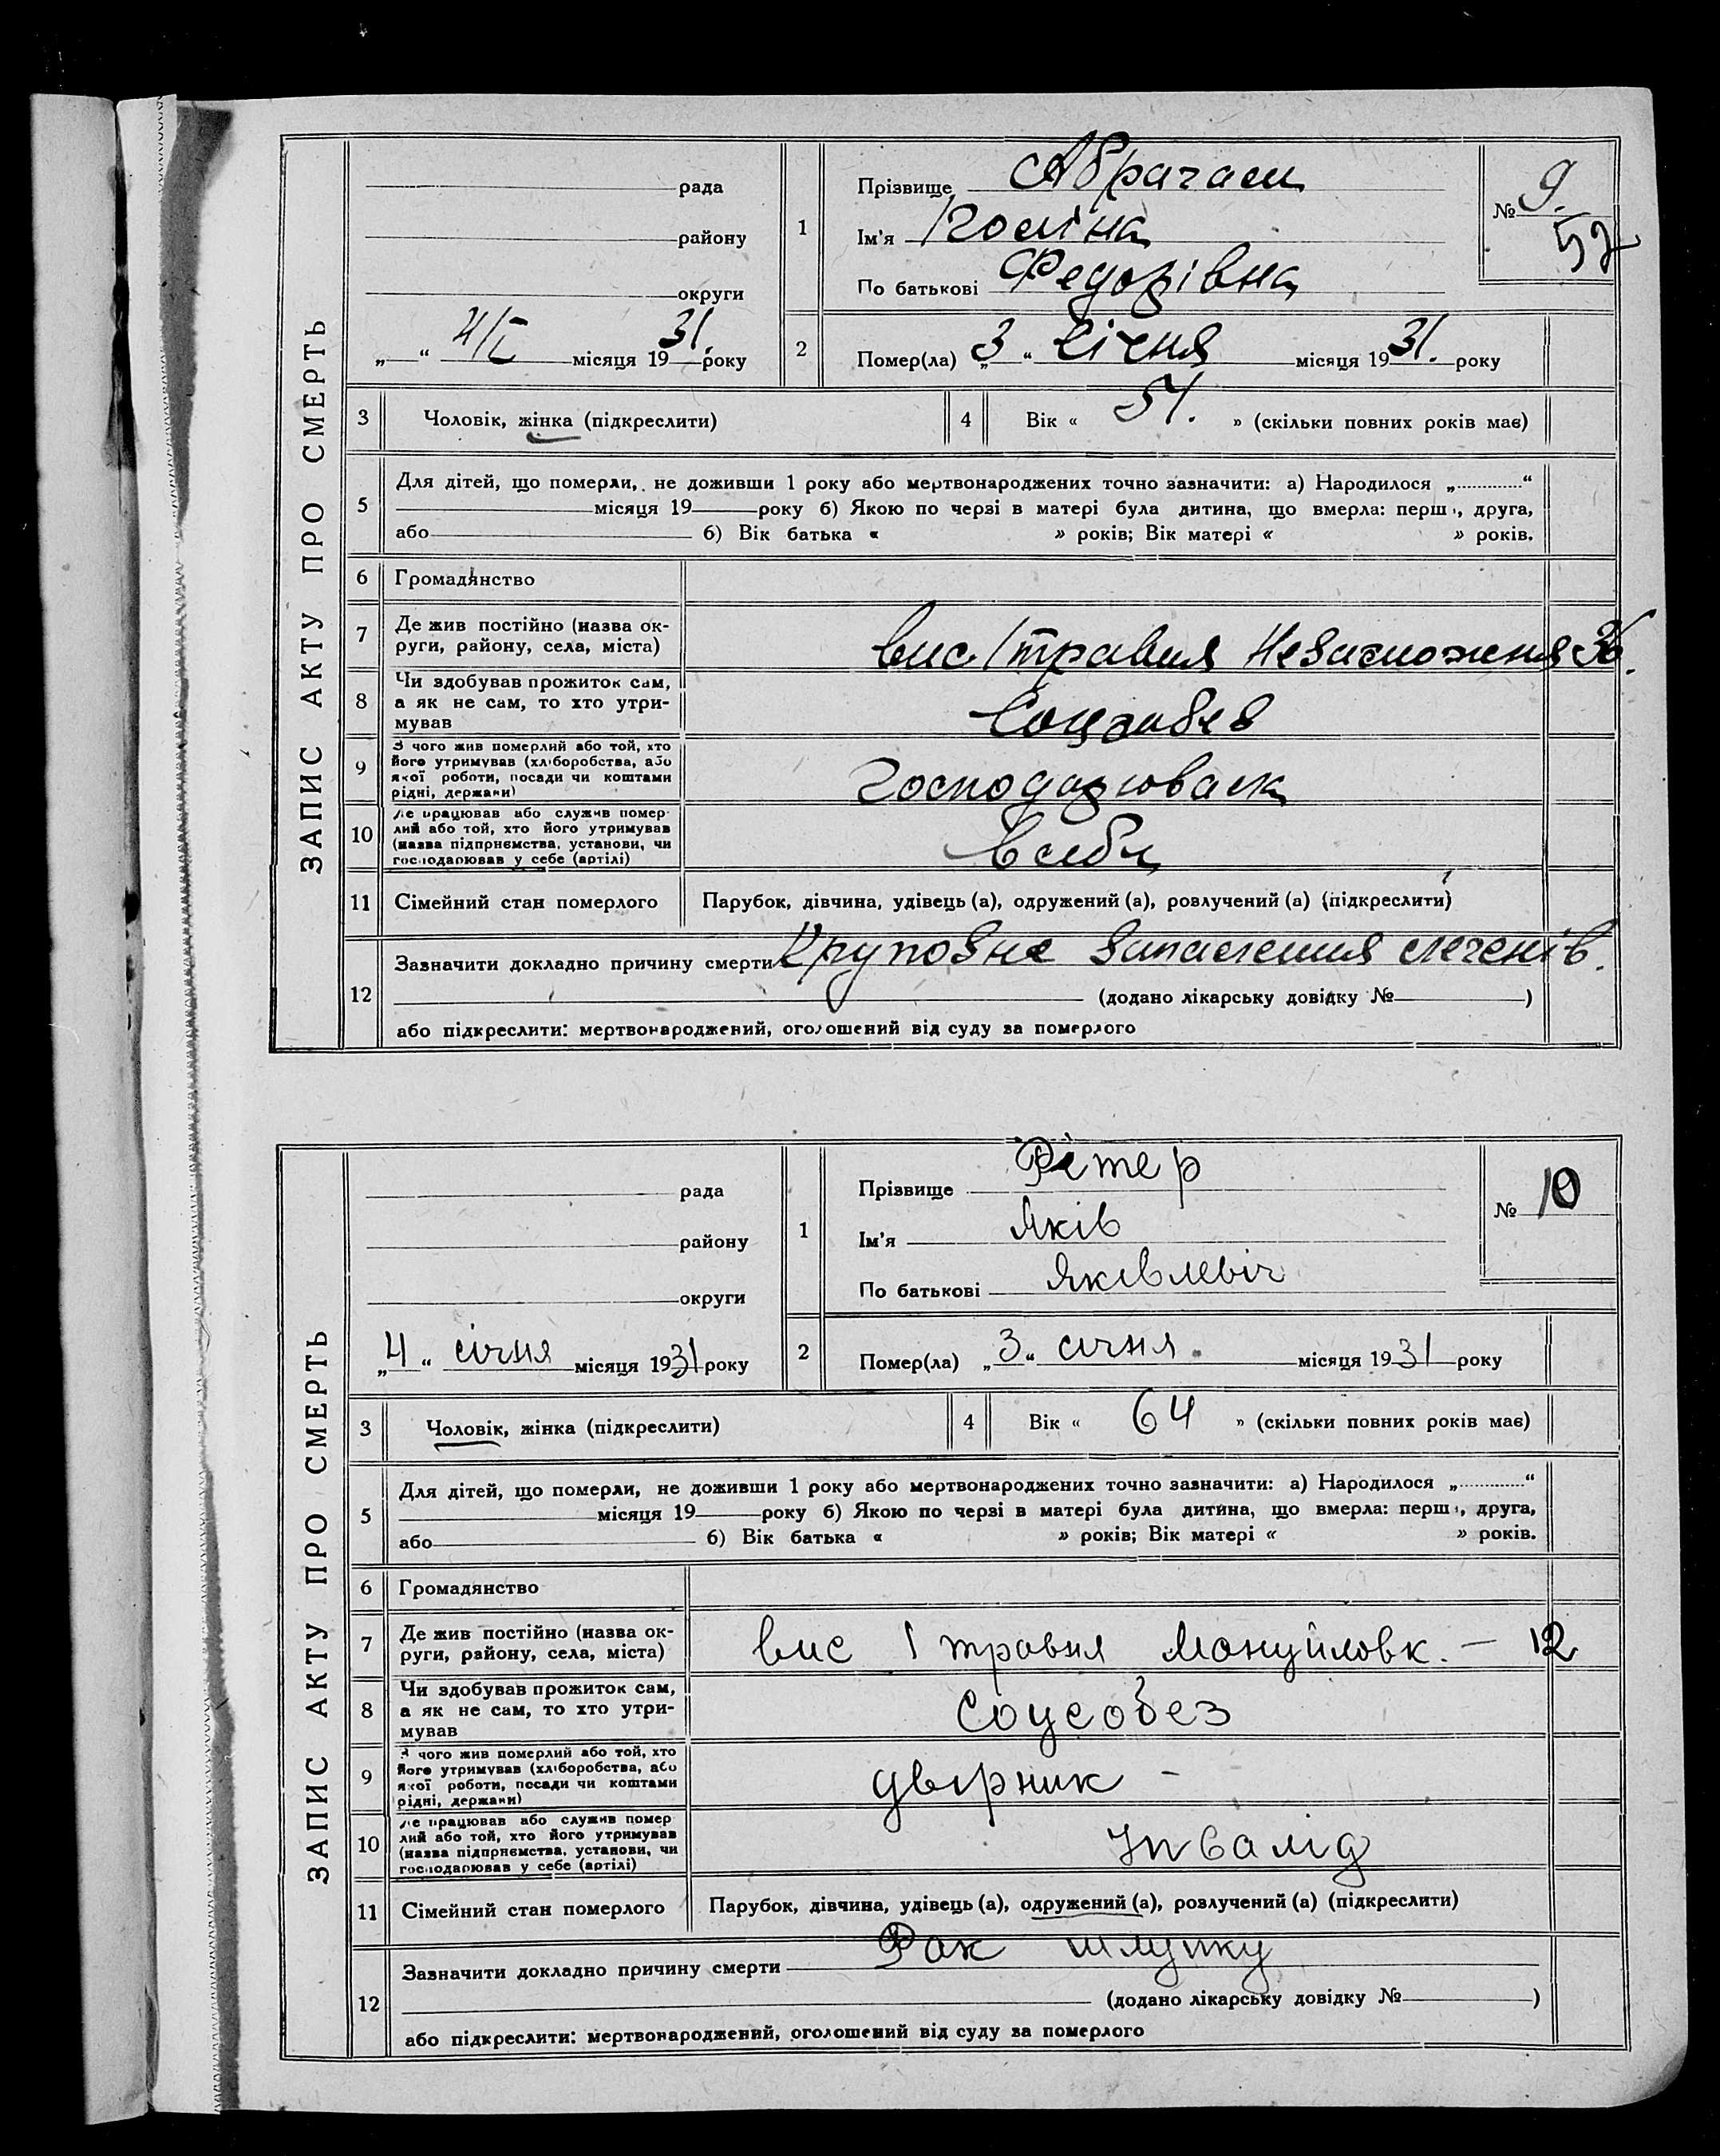 ЗАПИС АКТУ ПРО СМЕРТЬ
рада
району
округи
4/I місяця 1931. року
1
Прізвище Абрагам
Ім'я
По батькові Федорівна
№ 9.
52
2
Помер(ла) „3“ січня місяця 1931. року
3 Чоловік, жінка (підкреслити)
4 Вік « 54. » (скільки повних років має)
5 Для дітей, що померли, не доживши 1 року або мертвонароджених точно зазначити: а) Народилося „............“
місяця 19 року б) Якою по черзі в матері була дитина, що вмерла: перша, друга,
або б) Вік батька « » років; Вік матері « » років.
6 Громадянство
7 Де жив постійно (назва ок-
руги, району, села, міста)
вис. 1 травня Незаможня 36.
8 Чи здобував прожиток сам,
а як не сам, то хто утри-
мував
9 З чого жив померлий або той, хто
його утримував (хліборобства, або
якої роботи, посади чи коштами
рідні, держави)
Господарювала
10 Де працював або служив помер-
лий або той, хто його утримував
(назва підприємства, установи, чи
господарював у себе (артілі)
в себе
11 Сімейний стан померлого Парубок, дівчина, удівець (а), одружений (а), розлучений (а) (підкреслити)
12 Зазначити докладно причину смерти Крупозне запалення легенів.
(додано лікарську довідку № )
або підкреслити: мертвонароджений, оголошений від суду за померлого
ЗАПИС АКТУ ПРО СМЕРТЬ
рада
району
округи
„4“ січня місяця 1931 року
1
Прізвище Рітер
Ім'я Яків
По батькові Яківлевіч
№ 10
2
Помер(ла) „3“ січня. місяця 1931 року
3 Чоловік, жінка (підкреслити)
4 Вік « 64 » (скільки повних років має)
5 Для дітей, що померли, не доживши 1 року або мертвонароджених точно зазначити: а) Народилося „............“
місяця 19 року б) Якою по черзі в матері була дитина, що вмерла: перша, друга,
або б) Вік батька « » років; Вік матері « » років.
6 Громадянство
7 Де жив постійно (назва ок-
руги, району, села, міста)
вис 1 травня Мануйловк. — 12
8 Чи здобував прожиток сам,
а як не сам, то хто утри-
мував
Соцсобез
9 З чого жив померлий або той, хто
його утримував (хліборобства, або
якої роботи, посади чи коштами
рідні, держави)
двірник -
10 Де працював або служив помер
лий або той, хто його утримував
(назва підприємства, установи, чи
господарював у себе (артілі)
Інвалід
11 Сімейний стан померлого Парубок, дівчина, удівець (а), одружений (а), розлучений (а) (підкреслити)
12 Зазначити докладно причину смерти Рак шлунку
(додано лікарську довідку № )
або підкреслити: мертвонароджений, оголошений від суду за померлого